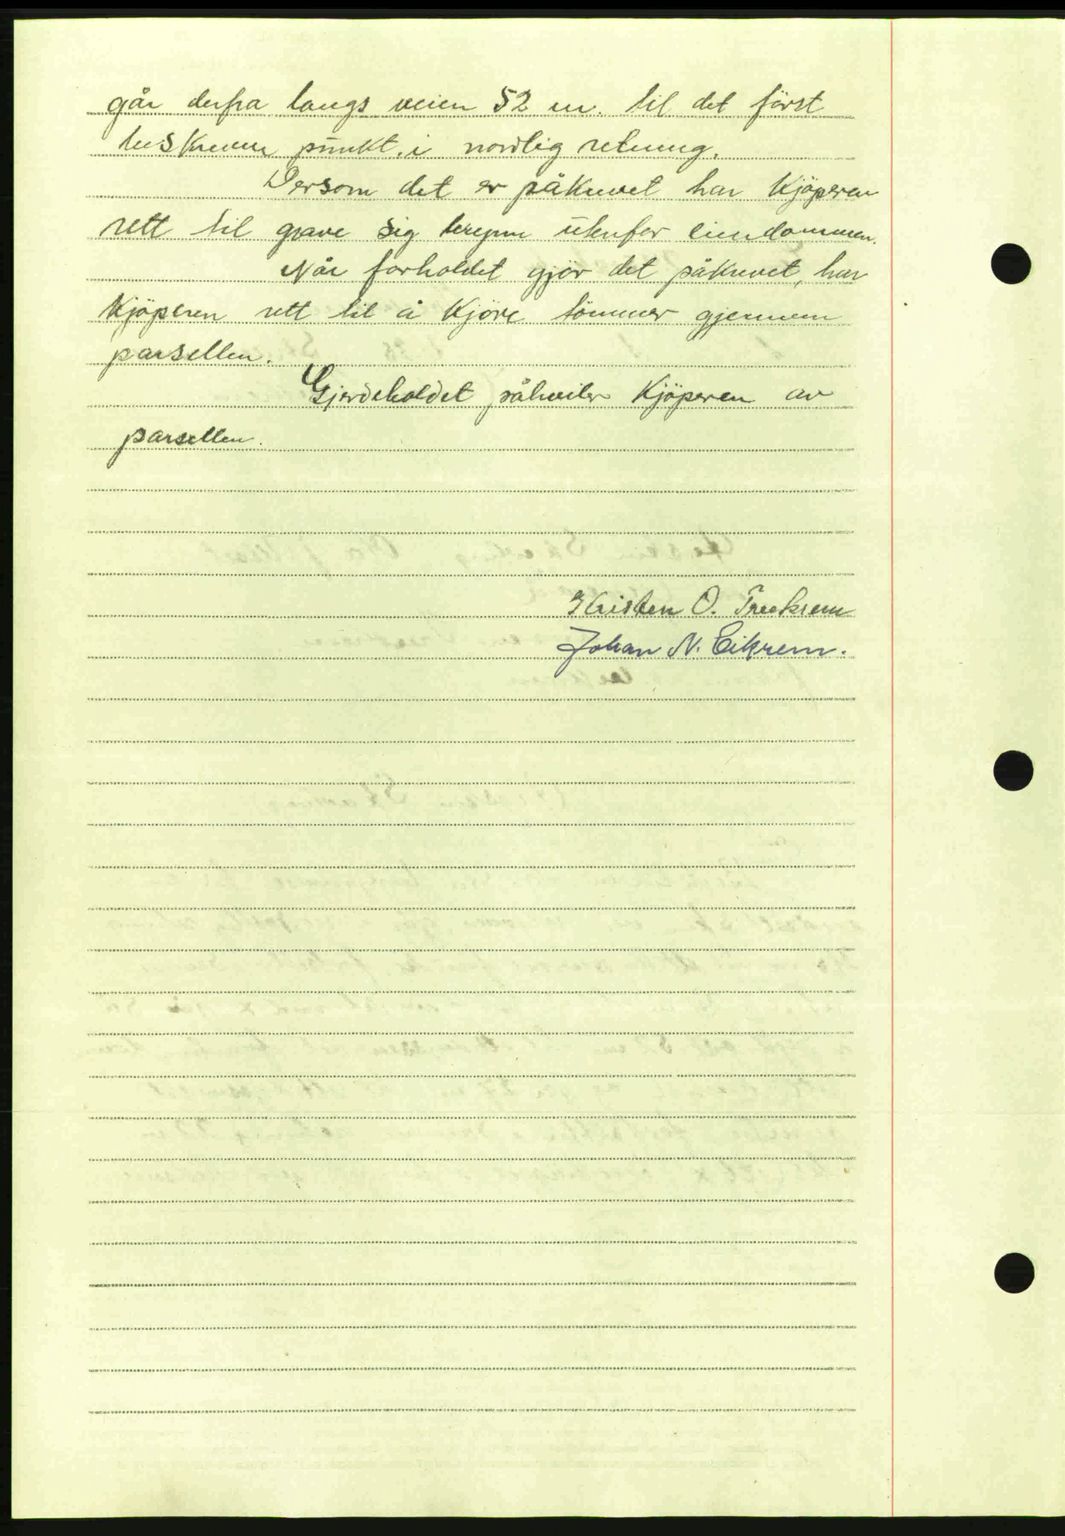 går derfra langs veien 52 m. til det först
beskreven punkt i nordlig retning.
Dersom det er påkrevet har Kjöperen
rett til grave sig brynn utenfor eiendommen.
Når forholdet gjör det påkrevet, har
Kjöperen rett til å Kjöre tömmer gjennem
parsellen.
Gjerdeholdet påhviler Kjöperen av
parsellen.
Kristen O. Treekrem
Johan N. Eikrem.